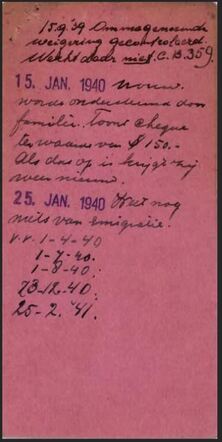 15.9.'39 Om nagenoemde
weigering gecontroleerd.
Werkt daar niet. C.B. 359.
15. JAN. 1940 vrouw
wordt ondersteund door
familie. Toont cheque
ter waarde van $ 150.-
Als dat op is krijgt zij
weer nieuwe.
25. JAN. 1940 Weet nog
niets van emigratie.
v.v. 1-4-40
1-7-40.
1-8-40.
23-12-40.
25-2-'41.